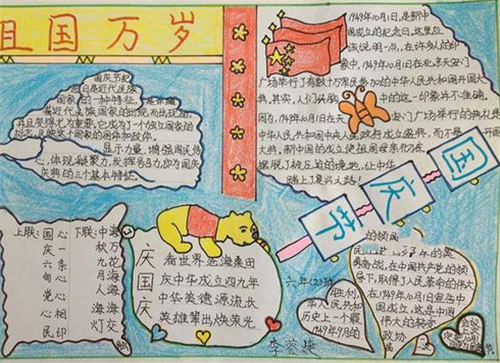 祖国万岁
国庆节纪
日是近代民族
国家的一种特征,
是
近代民族国家的出现而出现的,
并且变得尤为重要。它成为了一个独立国家的
标志,反映这个国家的国体和政体。
显示力量、增强国民信
心,体现凝聚力,发挥号召力,即为国庆
庆典的三个基本特征。
1949年10月1日,是新中
国成立的纪念日。这里应
该说明一点,在许多人的印
象中,1949年10月1日在北京天安门
广场举行了有数十万军民参加的中华人民共和国开国大
典。其实,人们头脑中的这一印象并不准确。
因为,1949年10月1日在天安门广场举行的典礼是
中华人民共和国中央人民政府成立盛典,而不是开国
大典。新中国的成立使祖国母亲
摆脱了被压迫的境地,让中华
踏上了复兴之路!
国庆节
上联:国庆六旬党心民心心一条心相印
下联:中秋九月人海灯海万花海海上交
庆国庆
看世界沧海桑田
庆中华成立四九年
中华英雄源流长
英雄辈出焕荣光
六年(2)班
李蓉婕
胜利,
人民共和
历史上一个最
1949年9月的
的领导
奋战,在中国共产党的领
导下,取得了人民革命的伟大
在1949年10月1日宣告中
国成立,这是中国
伟大的转变
政协
会议